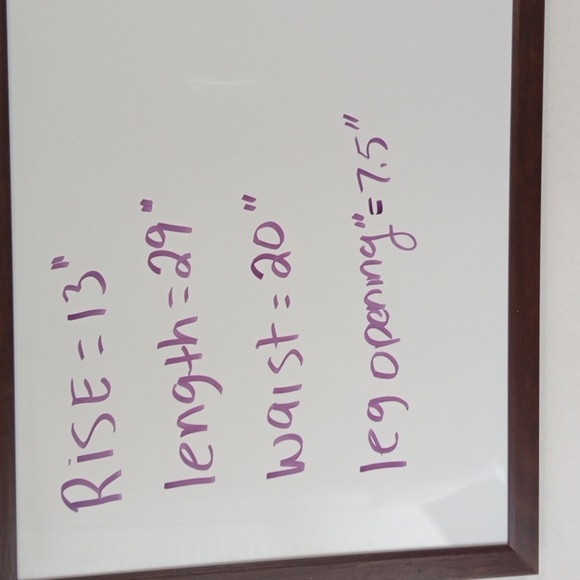 RiSE = 13"
length = 29"
waist = 20"
leg opening" = 7.5"